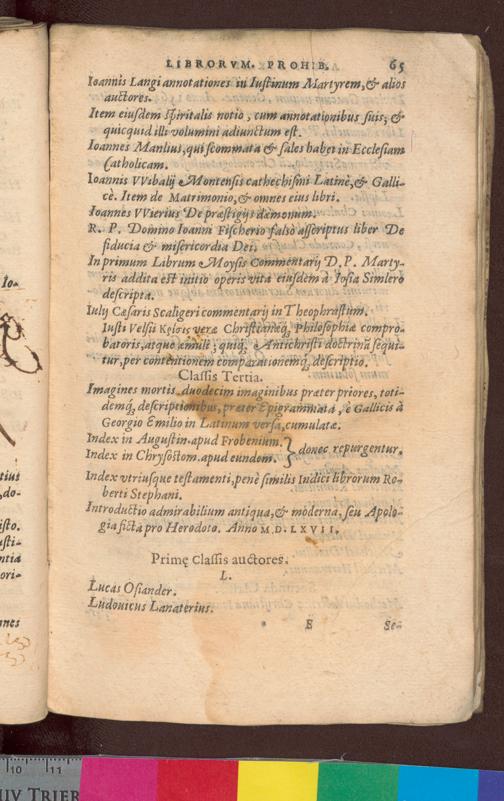 LIBRORVM. PROHIB. 65
Ioannis Langi annotationes in Iustinum Martyrem, & alios
auctores.
Item eiusdem spiritalis notio, cum annotationibus suis, &
quicquid illi volumini adiunctum est.
Ioannes Manlius, qui scommata & sales habet in Ecclesiam
Catholicam.
Ioannis VVibalij Montensis cathechismi Latinè, & Galli-
cè. Item de Matrimonio, & omnes eius libri.
Ioannes VVierius De præstigijs dæmonum.
R. P. Domino Ioanni Fischerio falsò asscriptus liber De
fiducia & misericordia Dei.
In primum Librum Moysis Commentarij D. P. Marty-
ris addita est initio operis vita eiusdem à Iosia Simlero
descripta.
Iulij Cæsaris Scaligeri commentarij in Theophrastum.
Iusti Velsii Κρίσις veræ Christianæq́; Philosophiæ compro-
batoris, atque æmuli, quiq́; Antichristi doctrinā sequi-
tur, per contentionem comparationemq́; descriptio.
Classis Tertia.
Imagines mortis duodecim imaginibus præter priores, toti-
demq́; descriptionibus, præter Epigrammata, è Gallicis à
Georgio Emilio in Latinum versa, cumulatæ.
Index in Augustin. apud Frobenium. } donec repurgentur.
Index in Chrysostom. apud eundem.
Index vtriusque testamenti, penè similis Indici librorum Ro-
berti Stephani.
Introductio admirabilium antiqua, & moderna, seu Apolo-
gia ficta pro Herodoto. Anno M.D.LXVII.
Primę Classis auctores.
L.
Lucas Osiander.
Ludouicus Lanaterius.
* E Se-
Io-
tius
,do-
isto.
usti-
ntia
ori-
nnes
10 11
HIV TRIER